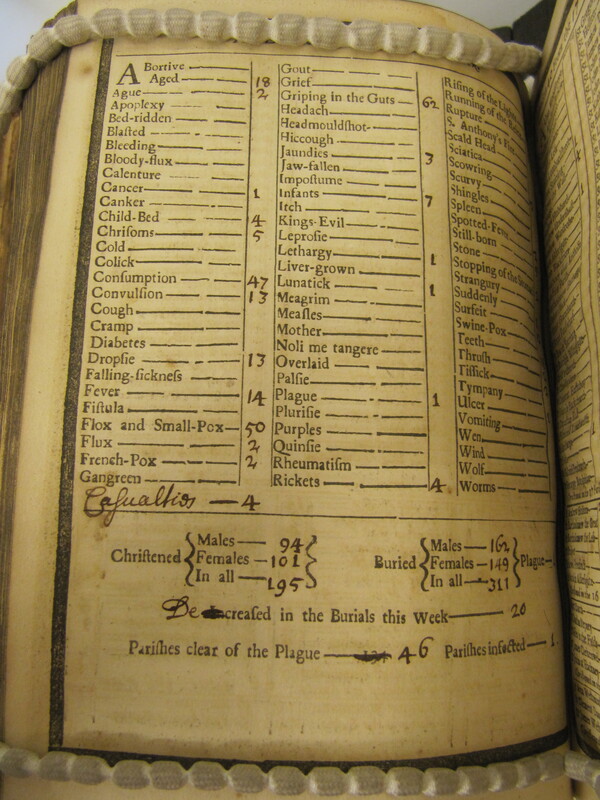 Abortive
Aged 18
Ague 2
Apoplexy
Bed-ridden
Blasted
Bleeding
Bloody-flux
Calenture
Cancer 1
Canker
Child-Bed 4
Chrisoms 5
Cold
Colick
Consumption 47
Convulsion 13
Cough
Cramp
Diabetes
Dropsie 13
Falling-sickness
Fever 14
Fistula
Flox and Small-Pox 50
Flux 2
French-Pox 2
Gangreen
Casualties — 4
Gout
Grief
Griping in the Guts 62
Headach
Headmouldshot
Hiccough
Jaundies 3
Jaw-fallen
Impostume
Infants 7
Itch
Kings-Evil
Leprosie
Lethargy 1
Liver-grown
Lunatick 1
Meagrim
Measles
Mother
Noli me tangere
Overlaid
Palsie
Plague 1
Plurisie
Purples
Quinsie
Rheumatism
Rickets 4
Rising of the
Running of the
Rupture
S. Anthony's
Scald Head
Sciatica
Scowring
Scurvy
Shingles
Spleen
Spotted-Fever
Still-born
Stone
Stopping of the
Strangury
Suddenly
Surfeit
Swine-Pox
Teeth
Thrush
Tissick
Tympany
Ulcer
Vomiting
Wen
Wind
Wolf
Worms
Christened
Males — 94
Females — 101
In all — 195
Buried
Males — 162
Females — 149
In all — 311
Plague
Decreased in the Burials this Week — 20
Parishes clear of the Plague — 46 Parishes infected — 1